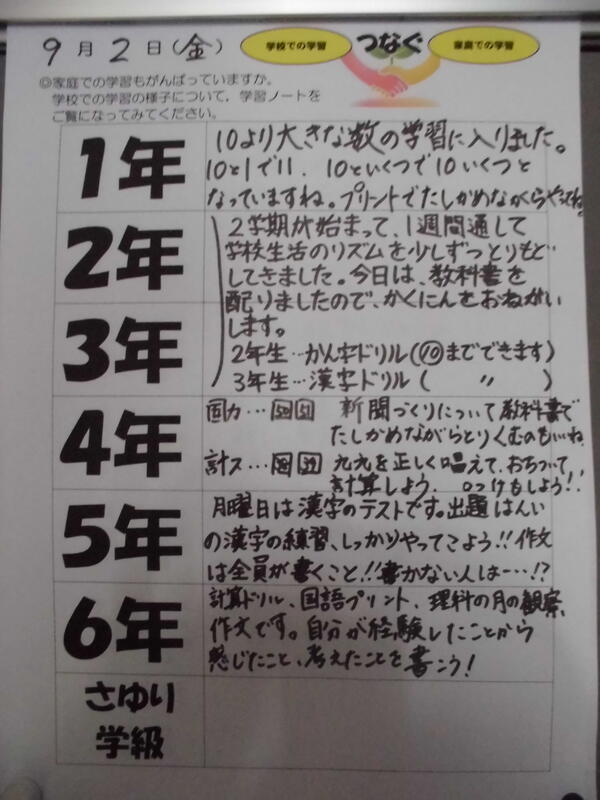 9月2日(金)
学校での学習
つなぐ
家庭での学習
◎家庭での学習もがんばっていますか。
学校での学習の様子について,学習ノートを
ご覧になってみてください。
1年
10より大きな数の学習に入りました。
10と1で11. 10といくつで10いくつと
なっていますね。プリントでたしかめながらやってね。
2年
3年
2学期が始まって、1週間通して
学校生活のリズムを少しずつとりもど
してきました。今日は、教科書を
配りましたので、かくにんをおねがい
します。
2年生…かん字ドリル(⑩までできます)
3年生…漢字ドリル( 〃 )
4年
国力… 50 51 新聞づくりについて教科書で
たしかめながらとりくむのもいいね
計ス… 九九を正しく唱えて、おちついて
計算しよう. ○つけもしよう!!
5年
月曜日は漢字のテストです。出題はんい
の漢字の練習、しっかりやってこよう!!作文
は全員が書くこと!!書かない人は…!?
6年
計算ドリル、国語プリント、理科の月の観察、
作文です。自分が経験したことから
感じたこと、考えたことを書こう!
さゆり
学級